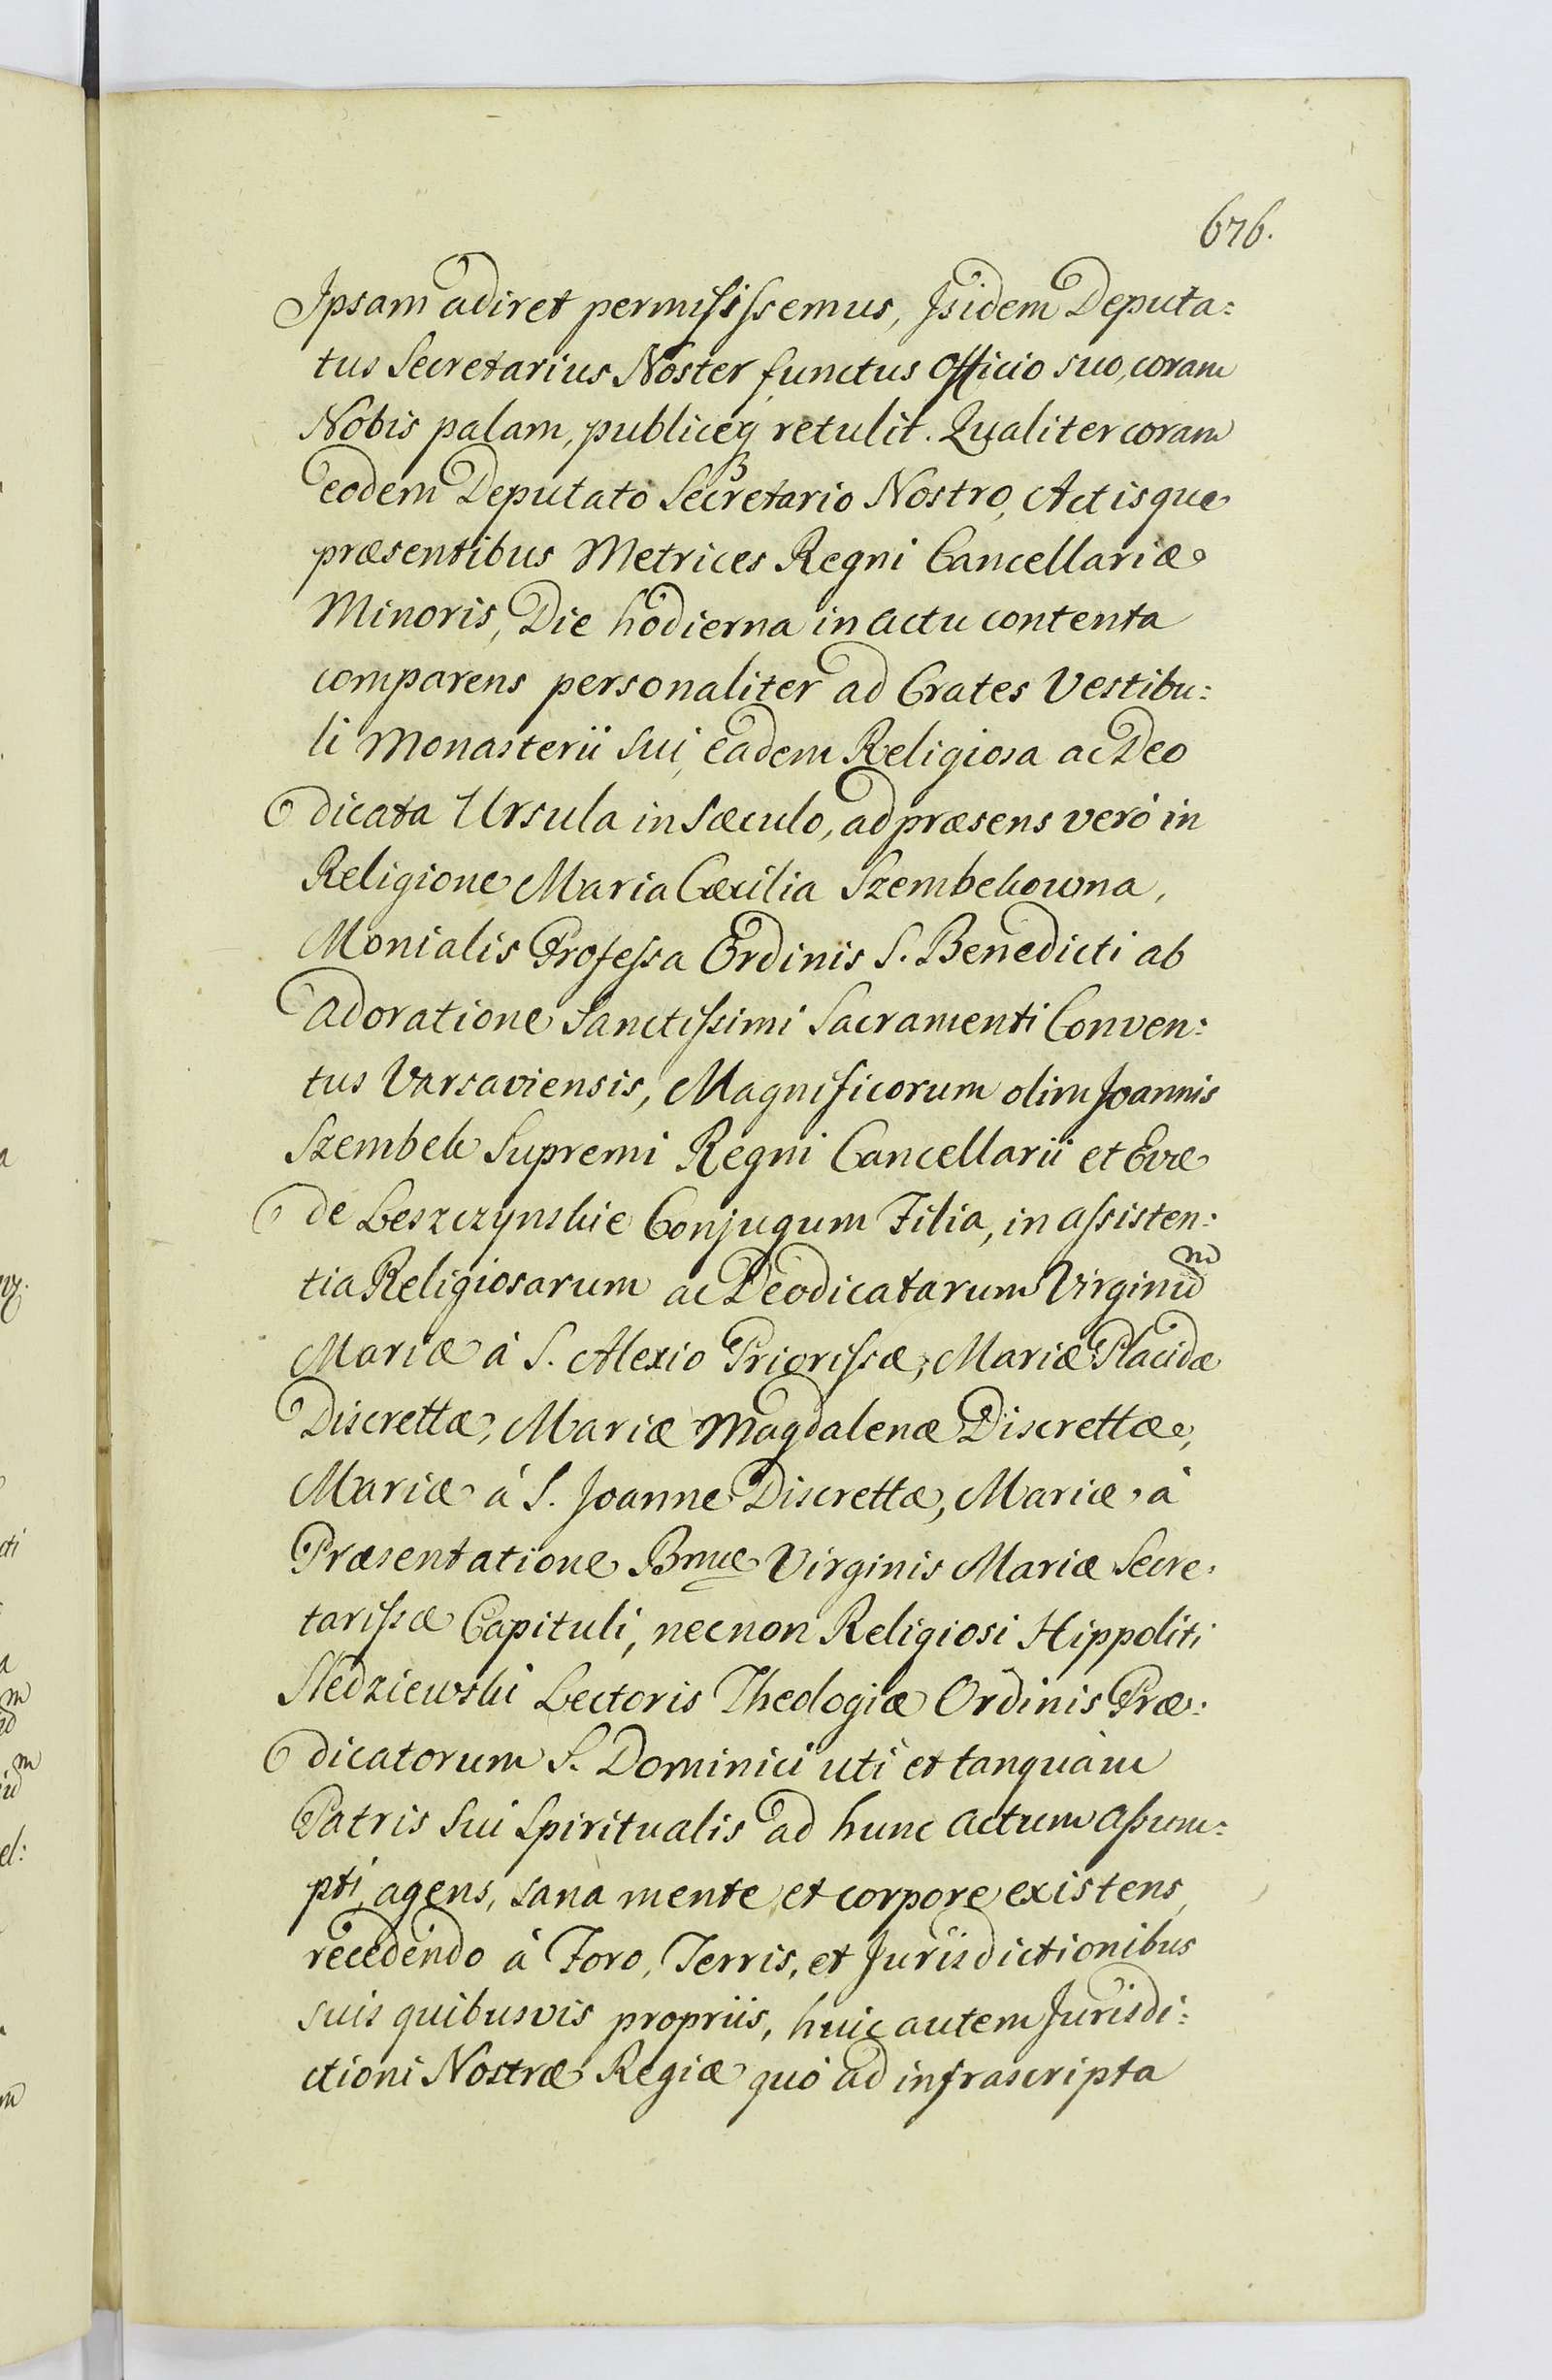 676.
Ipsam adiret permisissemus, Isidem Deputa:
tus Secretarius Noster functus Officio suo, coram
Nobis palam, publiceq retulit. Qualiter coram
eodem Deputato Secretario Nostro, Actisque
præsentibus Metrices Regni Cancellariæ
Minoris, Die hodierna in actu contenta
comparens personaliter ad Crates Vestibu:
li Monasterii sui, eadem Religiosa ac Deo
dicata Ursula in Sæculo, ad præsens verò in
Religione Maria Cæcilia Szembekowna,
Monialis Professa Ordinis S. Benedicti ab
adoratione Sanctissimi Sacramenti Conven:
tus Varsaviensis, Magnificorum olim Joannis
Szembek Supremi Regni Cancellarii et Evæ
de Leszczynskie Conjugum Filia, in assisten:
tia Religiosarum ac Deodicatarum Virginum
Mariæ à S. Alexio Priorissæ, Mariæ Placidæ
Discrettæ, Mariæ Magdalenæ Discrettæ,
Mariæ à S. Joanne Discrettæ, Mariæ à
Præsentatione Bmæ Virginis Mariæ Secre:
tarissæ Capituli, necnon Religiosi Hippoliti
Sledziewski Lectoris Theologiæ Ordinis Præ:
dicatorum S. Dominici uti et tanquàm
Patris sui Spiritualis ad hunc actum assum:
pti, agens, sana mente et corpore existens,
recedendo à Foro, Terris, et Jurisdictionibus
suis quibusvis propriis, huic autem Jurisdi:
ctioni Nostræ Regiæ quò ad infrascripta